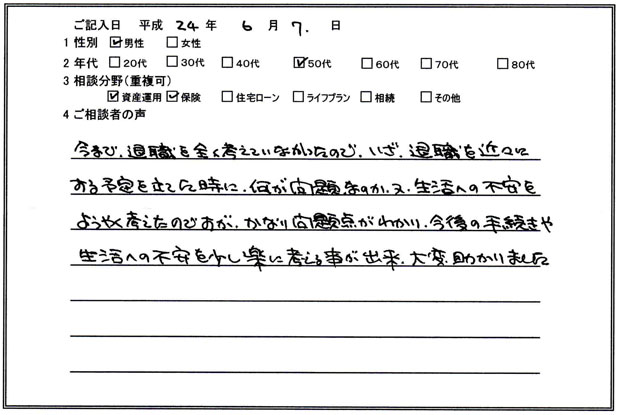 ご記入日 平成 24 年 6 月 7. 日
1 性別 ☑男性 □女性
2 年代 □20代 □30代 □40代 ☑50代 □60代 □70代 □80代
3 相談分野(重複可)
☑資産運用 ☑保険 □住宅ローン □ライフプラン □相続 □その他
4 ご相談者の声
今まで、退職を全く考えていなかったので、いざ、退職を近々に
する予定を立てた時に、何が問題なのか、又、生活への不安を
ようやく考えたのですが、かなり問題点がわかり、今後の手続きや
生活への不安を少し楽に考える事が出来、大変、助かりました